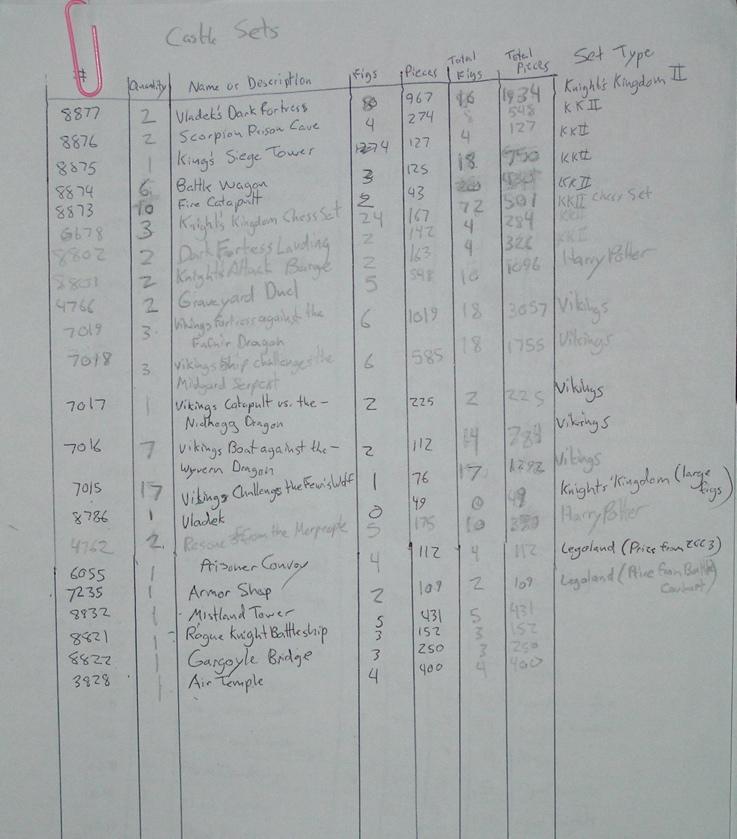 Castle Sets
# Quantity Name or Description Figs Pieces Total Figs Total Pieces Set Type
8877 2 Vladek's Dark Fortress 8 967 16 1934 Knight's Kingdom II
8876 2 Scorpion Prison Cave 4 274 8 548 KKII
8875 1 King's Siege Tower 4 127 4 127 KKII
8874 6 Battle Wagon 3 125 18 750 KKII
8873 10 Fire Catapult 2 43 KKII
6678 3 Knight's Kingdom Chess Set 24 167 72 501 KKII Chess Set
8802 2 Dark Fortress Landing 2 142 4 284 KKII
8801 2 Knights Attack Barge 2 163 4 326 KKII
4766 2 Graveyard Duel 5 548 10 1096 Harry Potter
7019 3 Vikings Fortress against the 6 1019 18 3057 Vikings
Fafnir Dragon
7018 3 Vikings Ship challenges the 6 585 18 1755 Vikings
Midgard Serpent
7017 1 Vikings Catapult vs. the - 2 225 2 225 Vikings
Nidhogg Dragon
7016 7 Vikings Boat against the - 2 112 14 784 Vikings
Wyvern Dragon
7015 17 Vikings Challenge the Fenris Wolf 1 76 17 1292 Vikings
8786 1 Vladek 0 49 0 49 Knights' Kingdom (large figs)
4762 2 Rescue from the Merpeople 5 175 10 Harry Potter
6055 1 Prisoner Convoy 4 112 4 112 Legoland (Price from 2003)
7235 1 Armor Shop 2 109 2 109 Legoland (Price from
8832 1 Mistland Tower 5 431 5 431
8821 1 Rogue Knight Battleship 3 152 3 152
8822 1 Gargoyle Bridge 3 250 3 250
3828 1 Air Temple 4 400 4 400